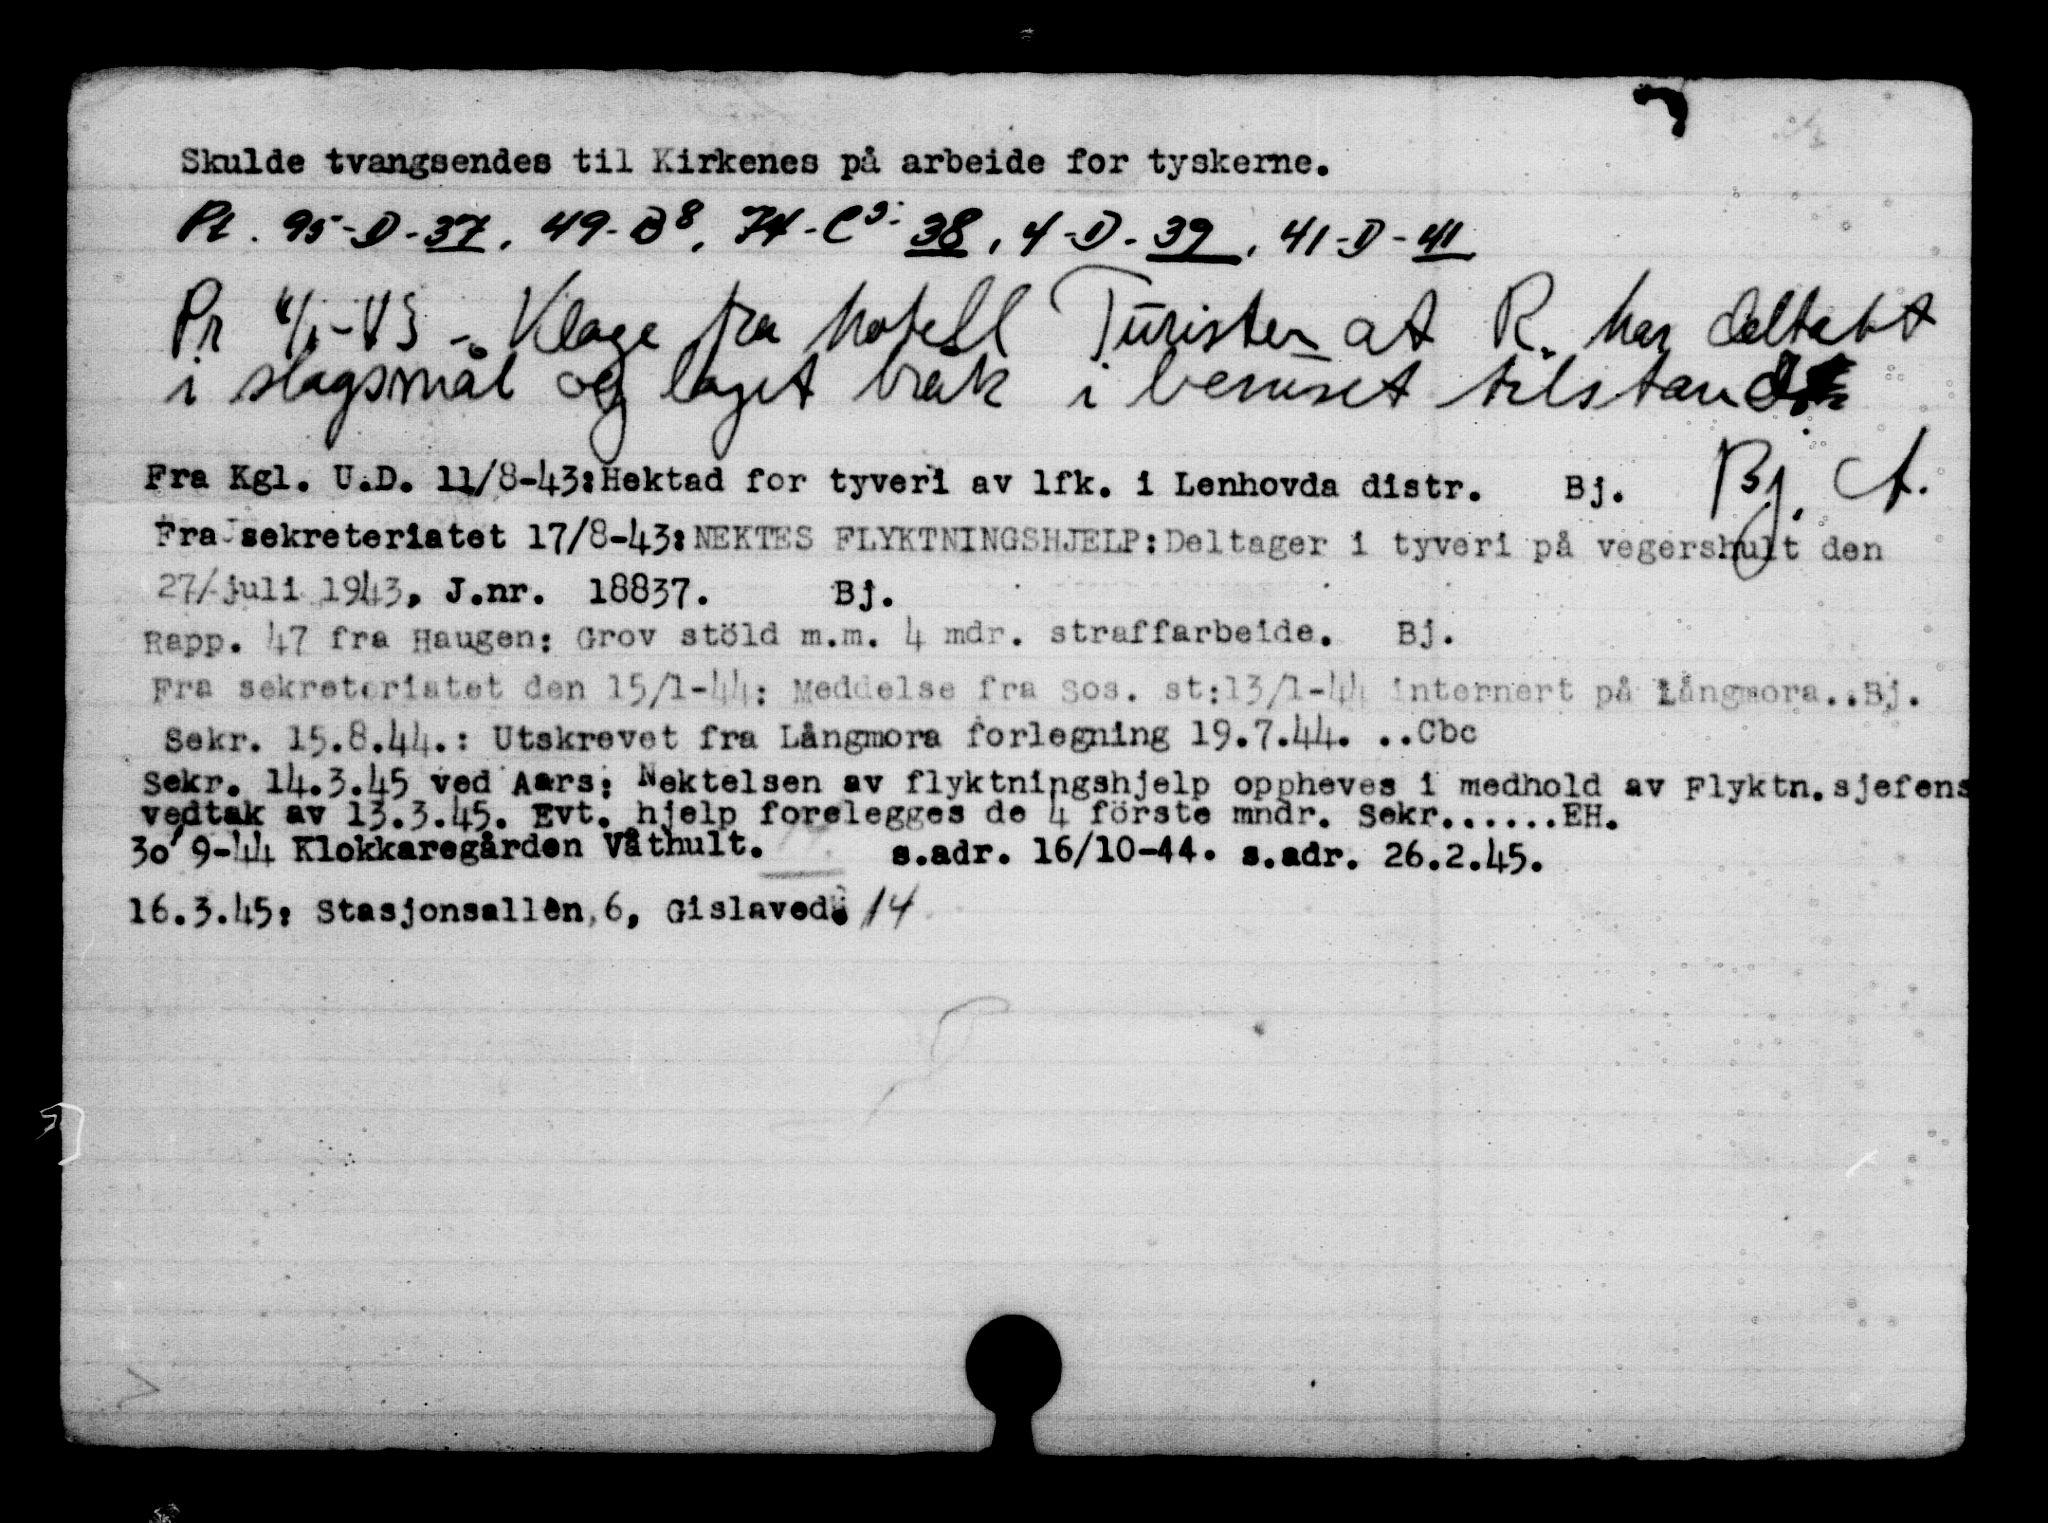 Skulde tvangsendes til Kirkenes på arbeide for tyskerne.
Pl. 95-D-37, 49-B8, 74-C5-38, 4-D-39, 41-D-41
Pr 4/1-43 - Klage fra hotell Turisten at R. har deltatt
i slagsmål og laget bråk i beruset tilstand
Bj. A.
Fra Kgl. U.D. 11/8-43:Hektad for tyveri av lfk. i Lenhovda distr. Bj.
Fra sekreteriatet 17/8-43:NEKTES FLYKTNINGSHJELP:Deltager i tyveri på vegershult den
27/juli 1943, J.nr. 18837. Bj.
Rapp. 47 fra Haugen: Grov stöld m.m. 4 mdr. straffarbeide. Bj.
Fra sekreteriatet den 15/1-44: Meddelse fra Sos. st:13/1-44 internert på Långmora..Bj.
Sekr. 15.8.44.: Utskrevet fra Långmora forlegning 19.7.44. ..Cbc
Sekr. 14.3.45 ved Aars: Nektelsen av flyktningshjelp oppheves i medhold av Flyktn.sjefens
vedtak av 13.3.45. Evt. hjelp forelegges de 4 förste mndr. Sekr......EH.
30/9-44 Klokkaregården Våthult. s.adr. 16/10-44. s.adr. 26.2.45.
16.3.45: Stasjonsallèn,6, Gislaved. 14